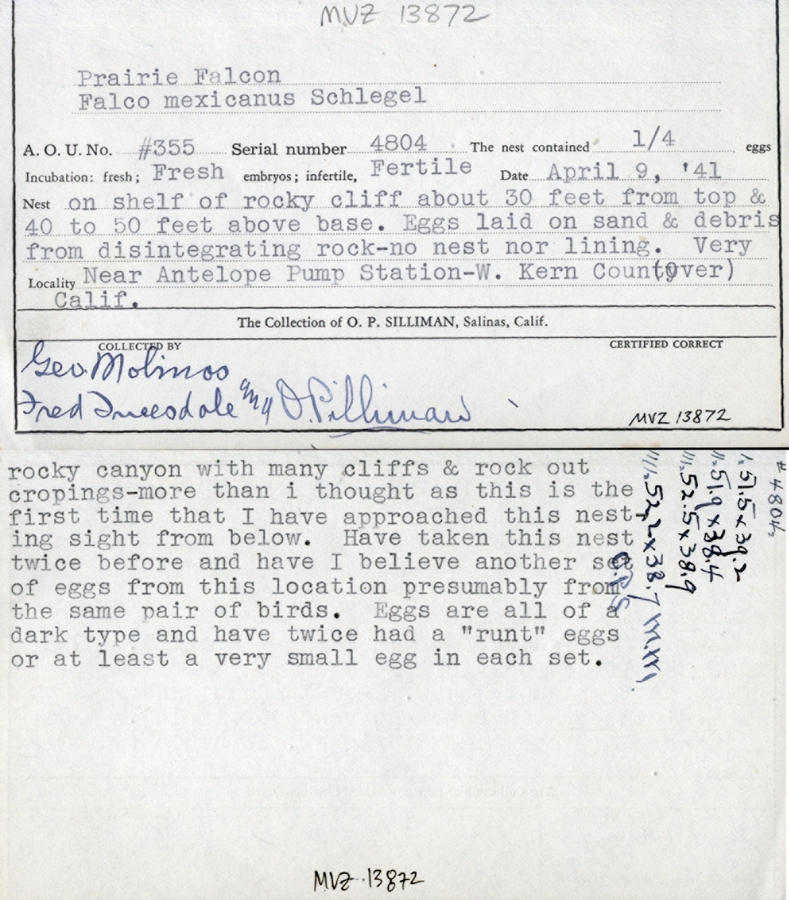 MVZ 13872
Prairie Falcon
Falco mexicanus Schlegel
A. O. U. No. #355 Serial number 4804 The nest contained 1/4 eggs
Incubation: fresh; Fresh embryos; infertile, Fertile Date April 9, '41
Nest on shelf of rocky cliff about 30 feet from top &
40 to 50 feet above base. Eggs laid on sand & debris
from disintegrating rock-no nest nor lining. Very
Locality Near Antelope Pump Station-W. Kern County (over)
Calif.
The Collection of O. P. SILLIMAN, Salinas, Calif.
COLLECTED BY CERTIFIED CORRECT
Geo. Molinos
Fred Truesdale and O.P. Silliman
MVZ 13872
rocky canyon with many cliffs & rock out
cropings-more than i thought as this is the
first time that I have approached this nest-
ing sight from below. Have taken this nest
twice before and have I believe another set
of eggs from this location presumably from
the same pair of birds. Eggs are all of a
dark type and have twice had a "runt" eggs
or at least a very small egg in each set.
O.P.S.
#4804,
1. 51.5 x 39.2
11. 51.9 x 38.4
111. 52.5 x 38.9
1111. 52.2 x 38.7 m.m.
MVZ 13872